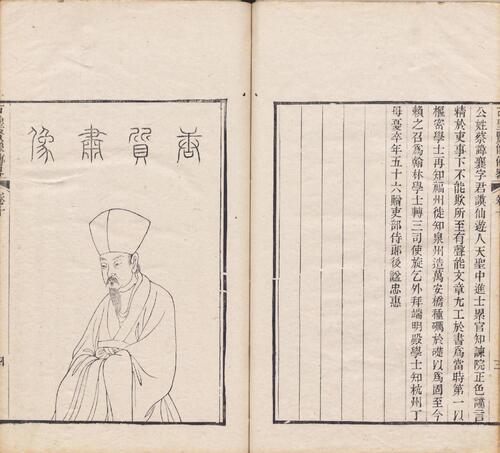 公姓蔡諱襄字君謨仙遊人天聖中進士累官知諫院正色讜言
精於吏事下不能欺所至有聲能文章尤工於書爲當時第一以
樞密學士再知福州徙知泉州造萬安橋種礪於礎以爲固至今
賴之召爲翰林學士轉三司使旋乞外拜端明殿學士知杭州丁
母憂卒年五十六贈吏部侍郎後諡忠惠
唐質肅像